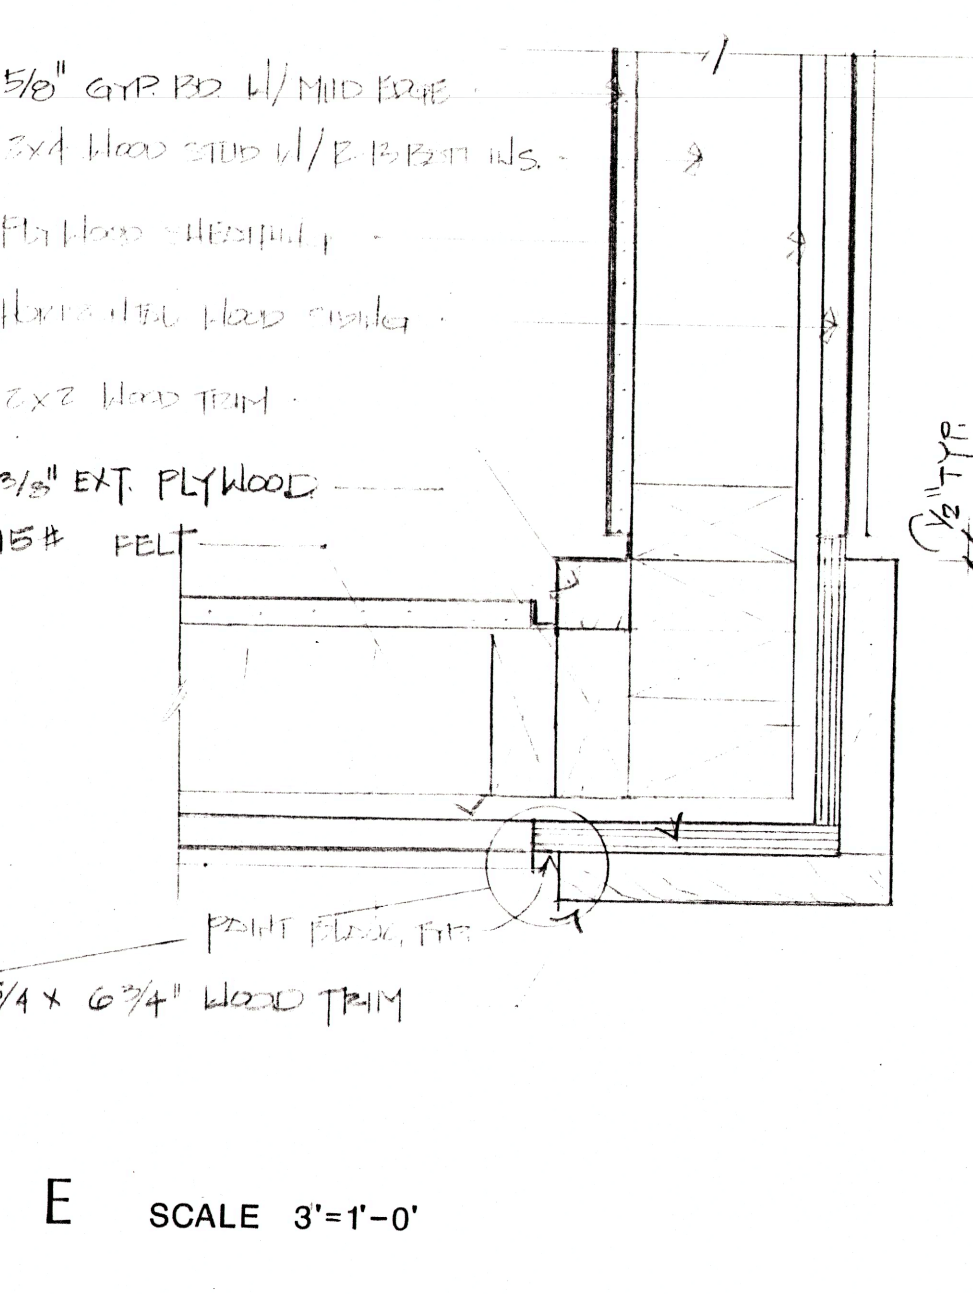 5/8" GYP. BD. W/ MIID EDGE
2x4 WOOD STUD W/ R-13 BATT INS.
PLYWOOD SHEATHING
HORIZONTAL WOOD SIDING
2x2 WOOD TRIM
3/8" EXT. PLYWOOD
15# FELT
1/2" TYP.
PAINT BLACK, TYP.
5/4 x 6 3/4" WOOD TRIM
E SCALE 3'=1'-0'